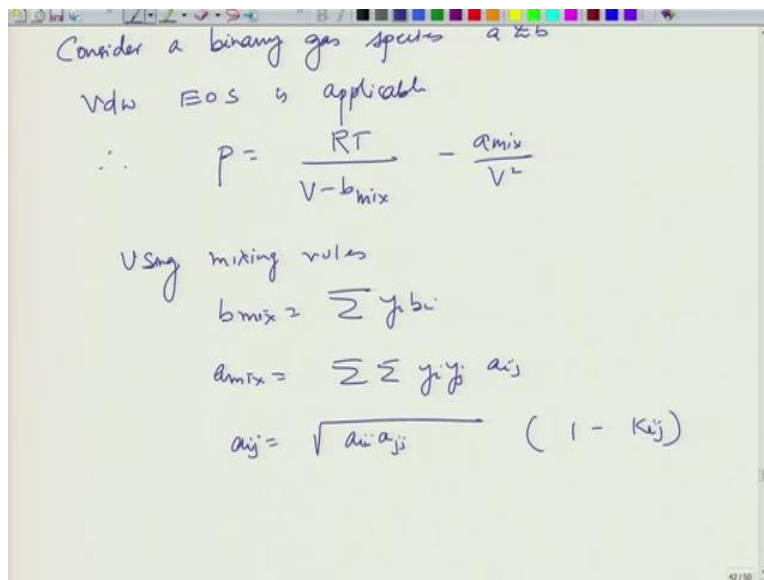 Consider a binary gas species a & b
Vdw EOS is applicable
∴ P = RT / (V - b_mix) - a_mix / V²
Using mixing rules
b mix = Σ y_i b_i
a_mix = Σ Σ y_i y_j a_ij
a_ij = √(a_ii a_jj) (1 - K_ij)
42/50